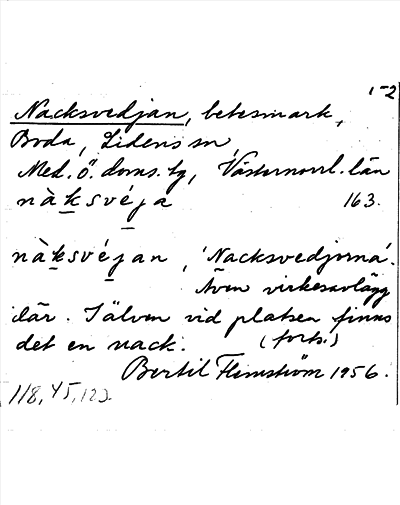 1-2
Nacksvedjan, betesmark,
Boda, Lidens sn
Med. ö. doms. tg, Västernorrl. län
nàksvéja 163.
nàksvéjan, 'Nacksvedjorna'.
Även virkesavlägg
där. I älven vid platsen finns
det en nack. (forts.)
Bertil Flemström 1956.
118, 45, 122